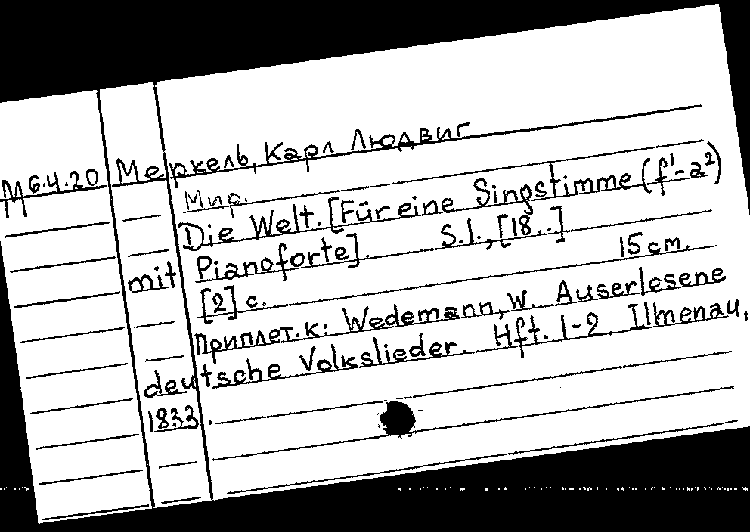 М 6.4.20 Меркель, Карл Людвиг
Мир.
Die Welt. [Für eine Singstimme (f¹-a²)
mit Pianoforte]. S.l., [18..]
[2] с. 15 cm.
Приплет. к: Wedemann, W. Auserlesene
deutsche Volkslieder. Hft. 1-2. Ilmenau,
1833.